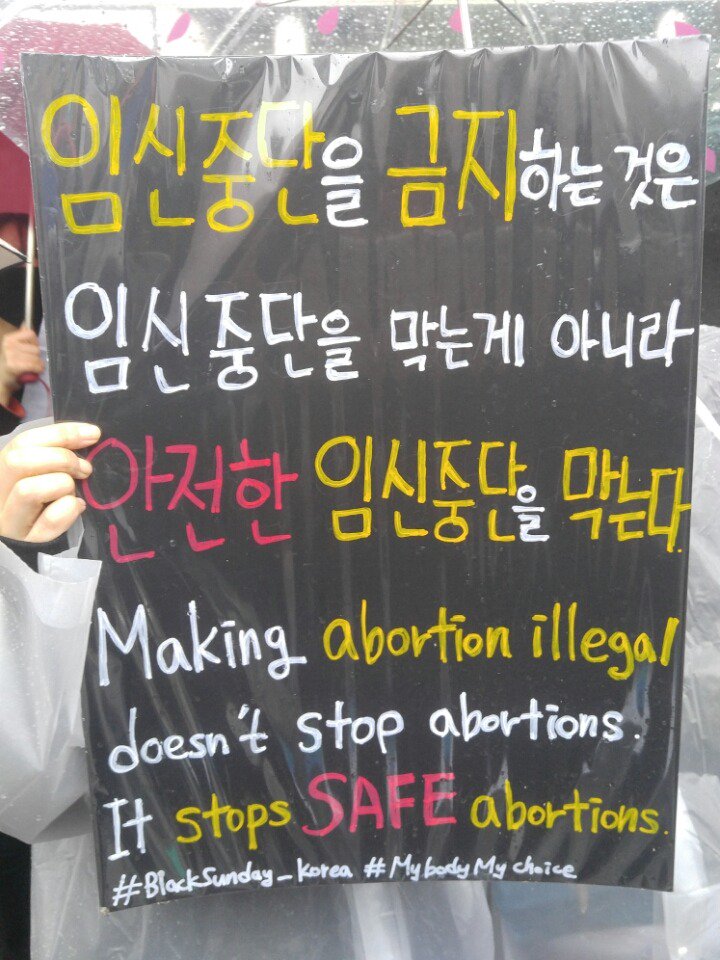 임신중단을 금지하는 것은
임신중단을 막는게 아니라
안전한 임신중단을 막는다.
Making abortion illegal
doesn't stop abortions.
It stops SAFE abortions.
#BlackSunday_Korea #MybodyMychoice